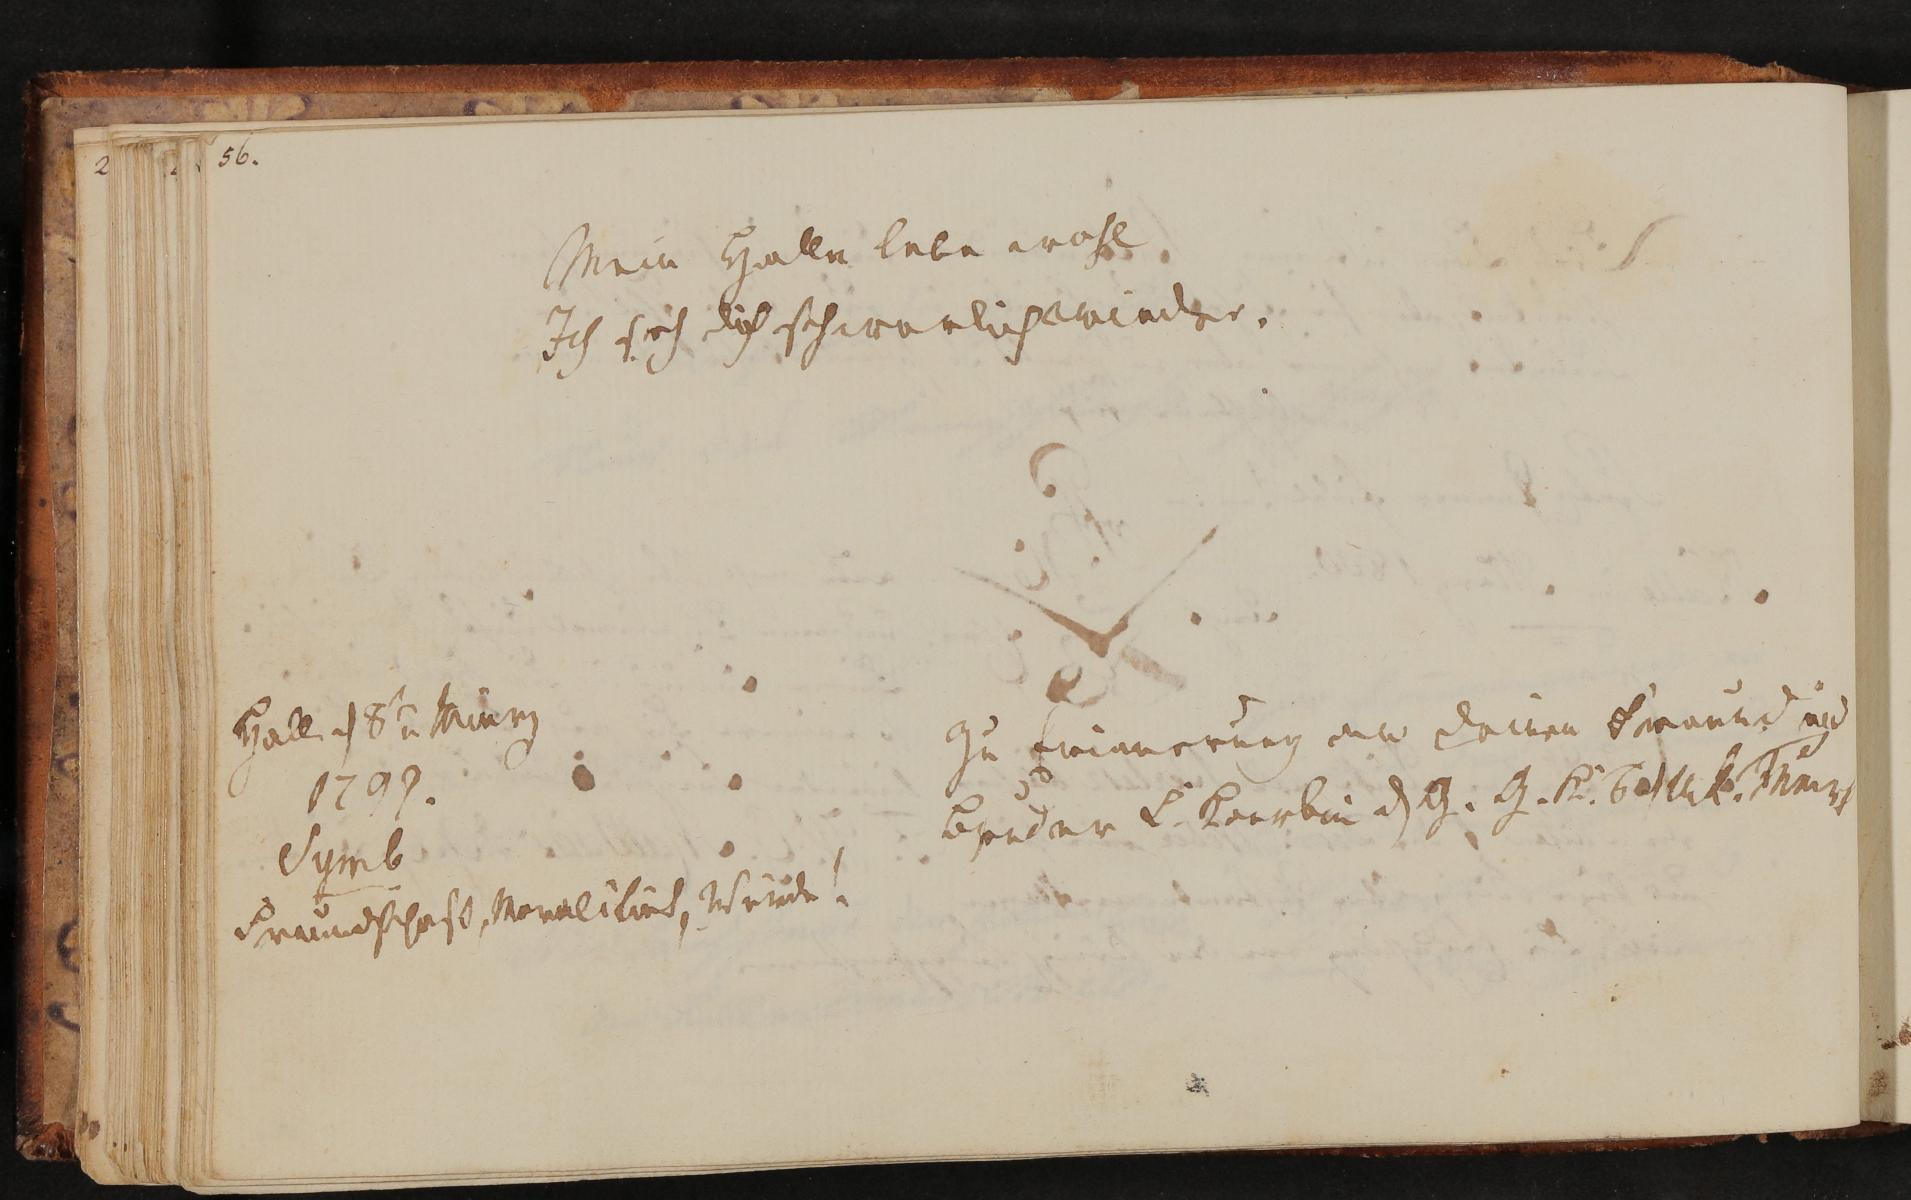 56.
Mein Halle lebe wohl
Ich seh dich schwerlich wieder.
Halle d 8t März
1797.
Symb
Freundschaft, Moralitaet, Würde!
Zu Erinnerung an deinen Freund und
Bruder d G. G. K.